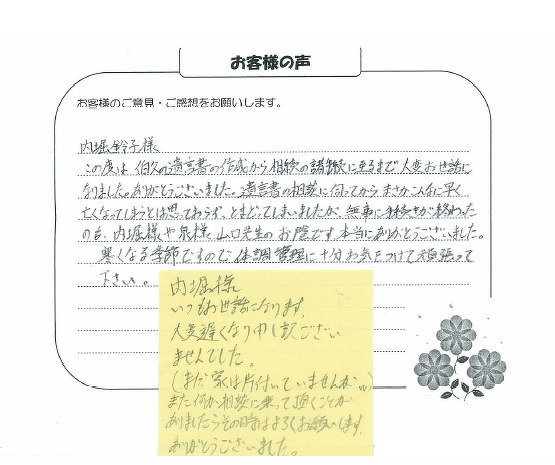 お客様の声
お客様のご意見・ご感想をお願いします。
内堀鈴子様
この度は伯父の遺言書の作成から相続の諸手続に至るまで大変お世話に
なりました。ありがとうございました。遺言書の相談に伺ってからまさかこんなに早く
亡くなってしまうとは思ておらず、とまどってしまいましたが、無事に手続きが終わった
のも、内堀様や泉様、山口先生のお陰です。本当にありがとうございました。
寒くなる季節ですので体調管理に十分お気をつけて頑張って
下さい。
内堀様
いつもお世話になります。
大変遅くなり申し訳ござい
ませんでした。
(まだ家は片付いていませんが
また何か相談に乗って頂くことが
ありましたらその時はよろしくお願いします。
ありがとうございました。